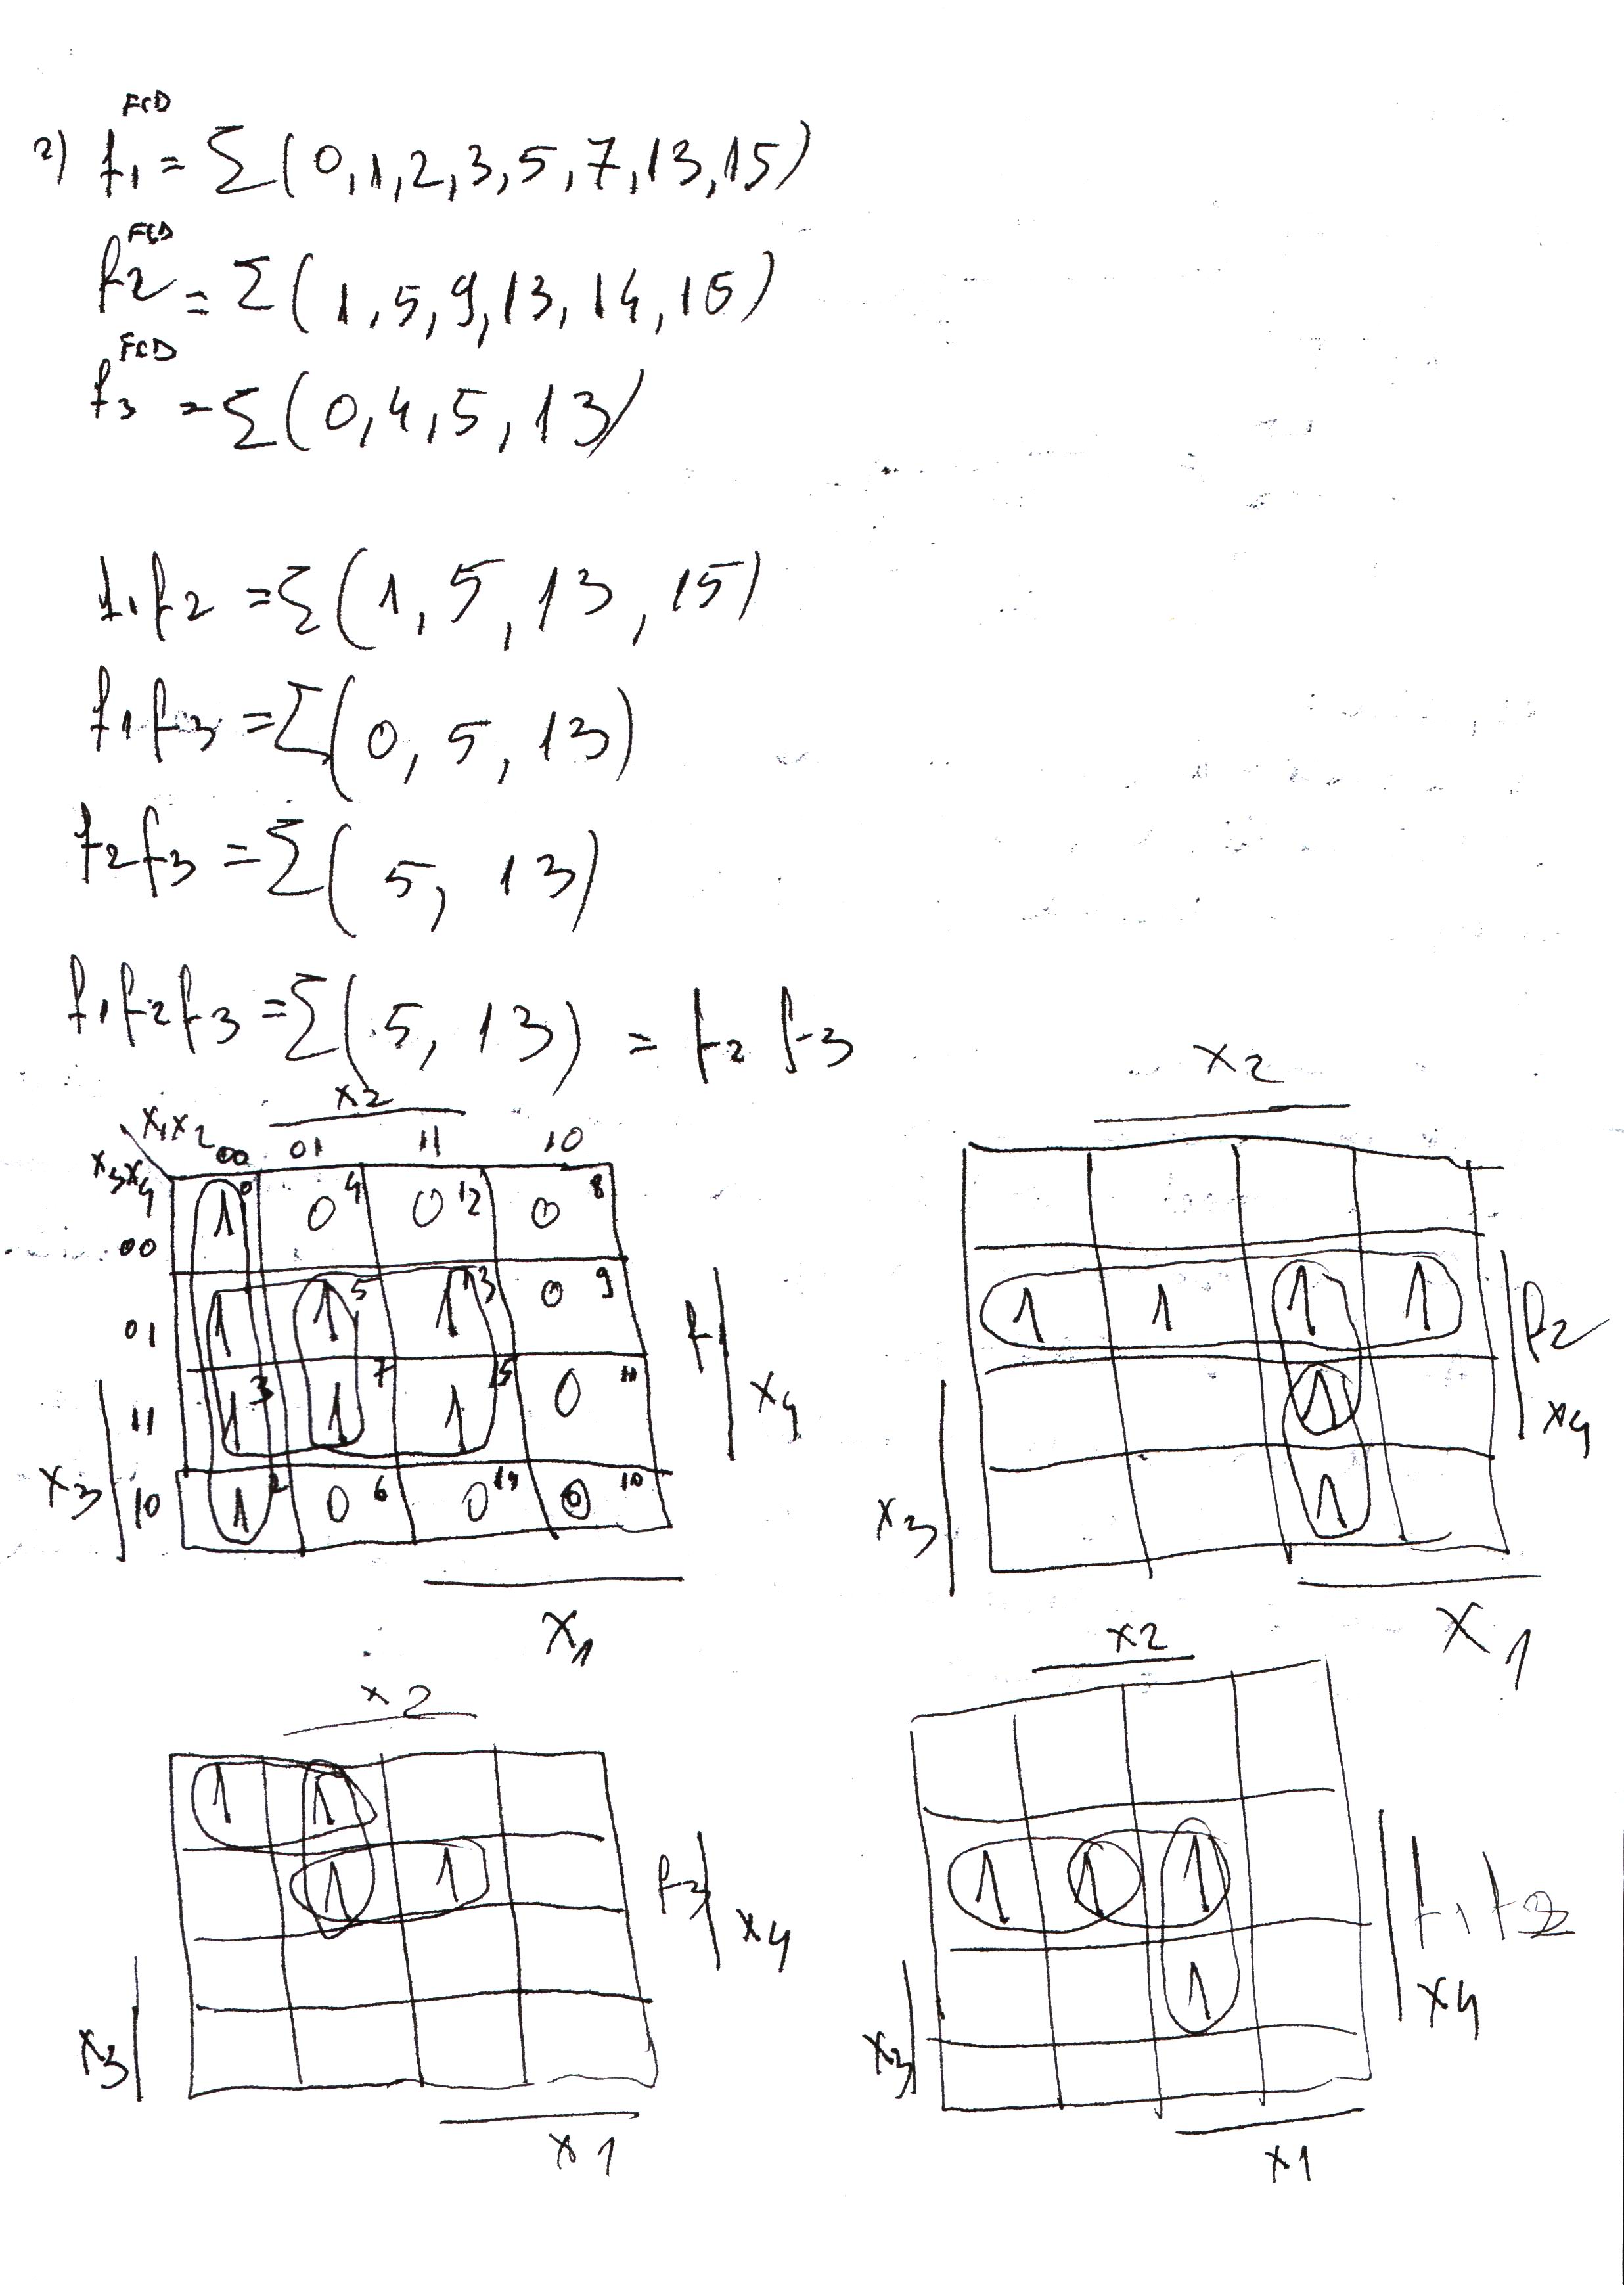 2) f1 FCD = Σ(0,1,2,3,5,7,13,15)
f2 FCD = Σ(1,5,9,13,14,15)
f3 FCD = Σ(0,4,5,13)
f1f2 = Σ(1,5,13,15)
f1f3 = Σ(0,5,13)
f2f3 = Σ(5,13)
f1f2f3 = Σ(5,13) = f2 f3
x2
x1x2 00 01 11 10
x3x4
00 1 0 0 4 0 12 0 8
01 1 1 5 1 13 0 9
11 1 3 1 7 1 15 0 11
10 1 2 0 6 0 14 0 10
x3
f1
x4
x1
x2
1 1 1 1
1
1
f2
x4
x3
x1
x2
1 1
1 1
f3
x4
x3
x1
x2
1 1 1
1
f1f2
x4
x3
x1